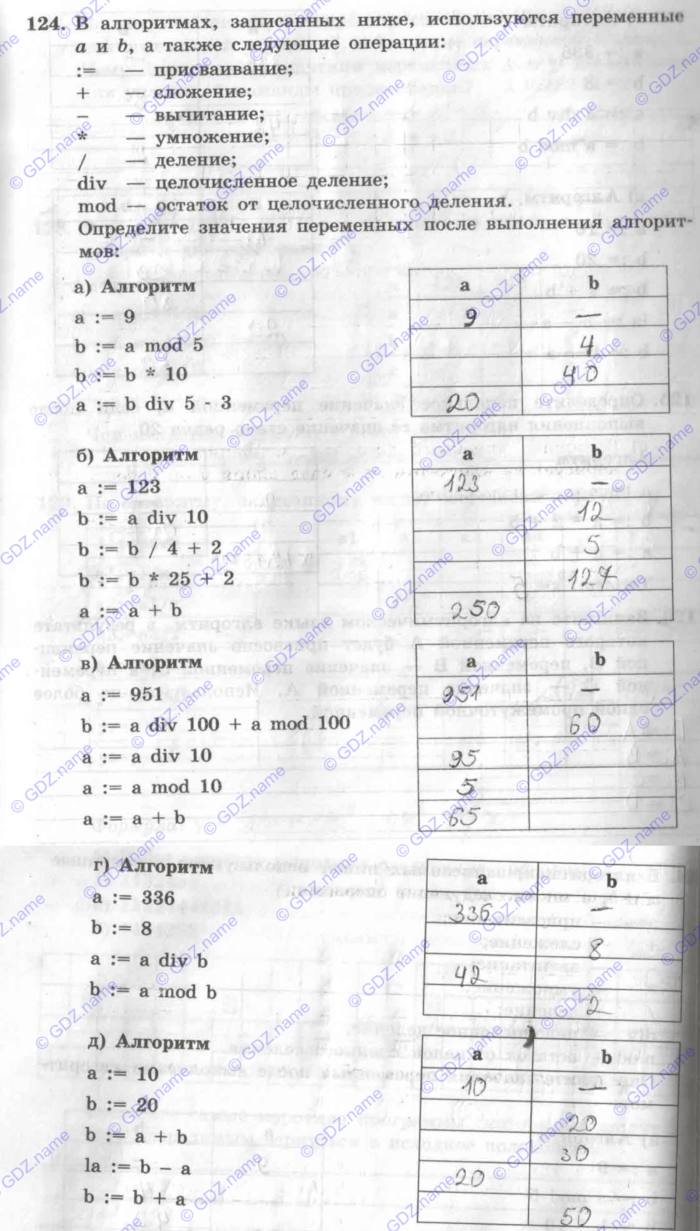 124. В алгоритмах, записанных ниже, используются переменные
a и b, а также следующие операции:
:= — присваивание;
+ — сложение;
– — вычитание;
* — умножение;
/ — деление;
div — целочисленное деление;
mod — остаток от целочисленного деления.
Определите значения переменных после выполнения алгорит-
мов:
а) Алгоритм
a := 9
b := a mod 5
b := b * 10
a := b div 5 * 3
a b
9 —
4
40
20
б) Алгоритм
a := 123
b := a div 10
b := b / 4 + 2
b := b * 25 + 2
a := a + b
a b
123 —
12
5
127
250
в) Алгоритм
a := 951
b := a div 100 + a mod 100
a := a div 10
a := a mod 10
a := a + b
a b
951 —
60
95
5
65
г) Алгоритм
a := 336
b := 8
a := a div b
b := a mod b
a b
336 —
8
42
2
д) Алгоритм
a := 10
b := 20
b := a + b
la := b – a
b := b + a
a b
10 —
20
30
20
50
© GDZ.name